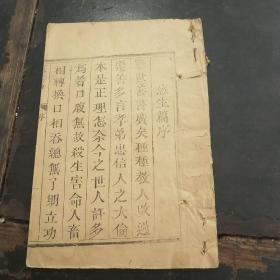 生篇序
世善書廣矣種種教人改過
遷善多言孝弟忠信人之大倫
本是正理怎奈今之世人許多
為着口腹無故殺生害命人畜
相轉換口相吞總無了期立功
序